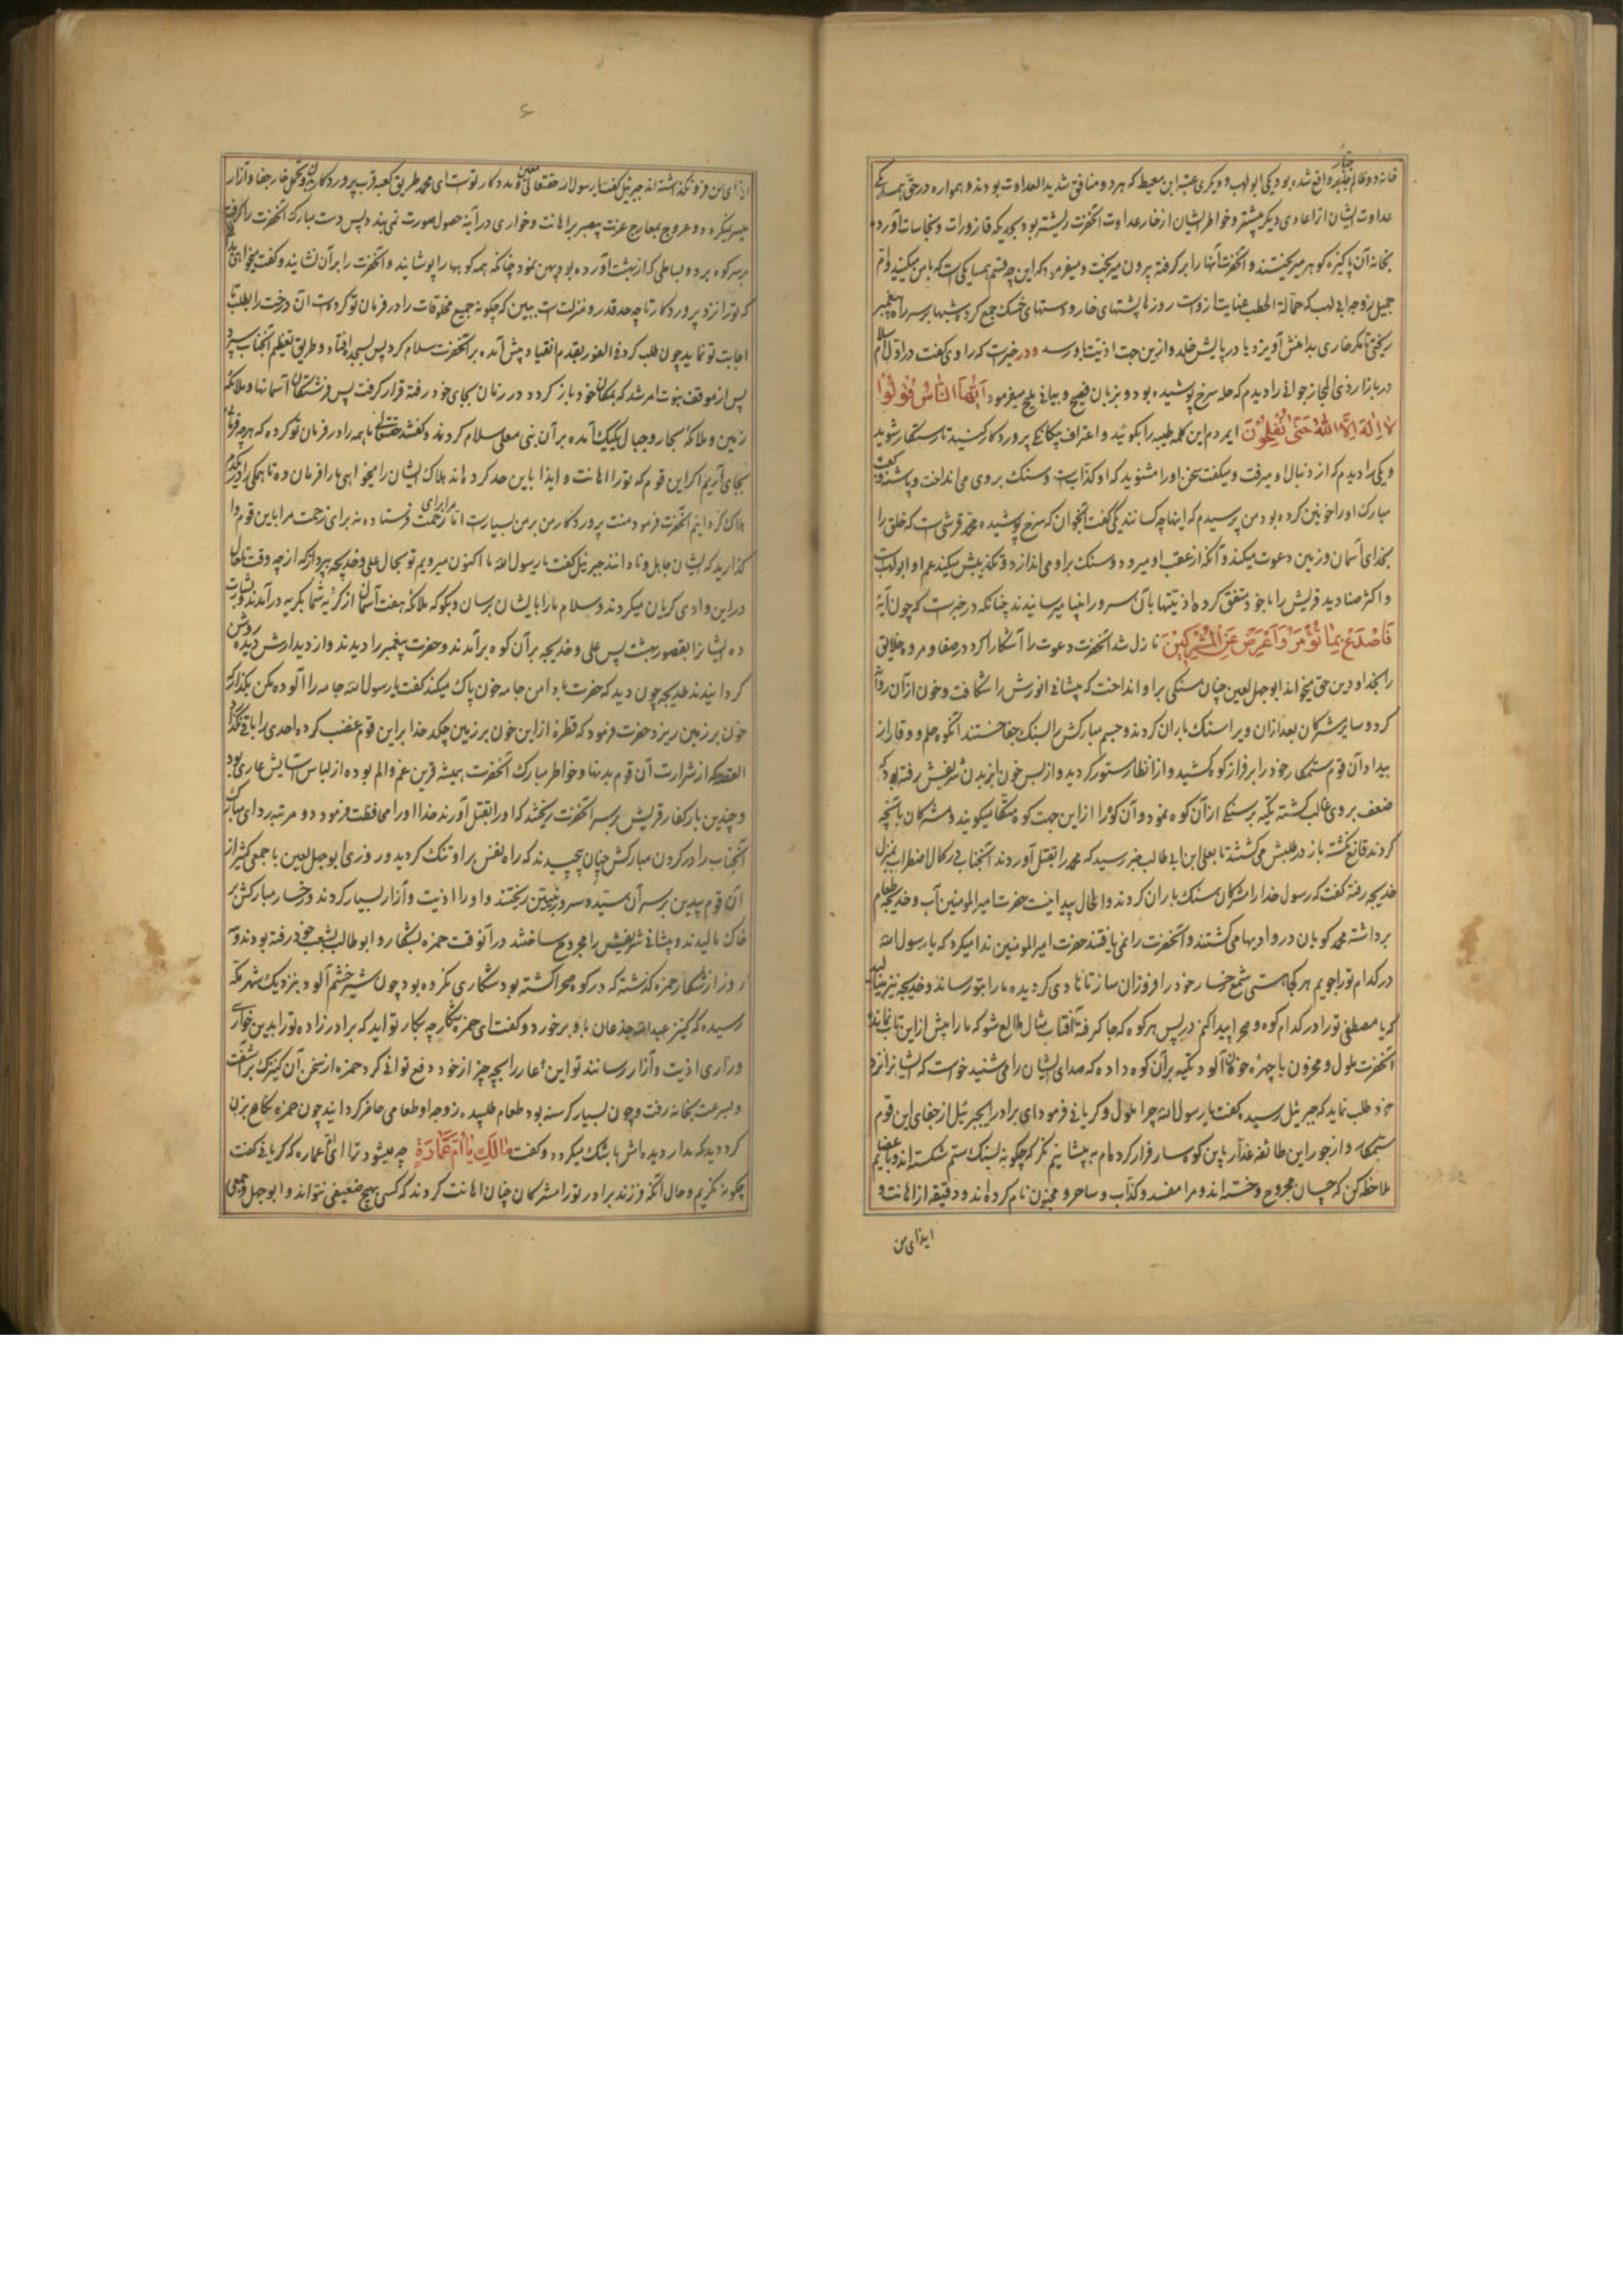 خانه دو ظالم جفا واقع شده بود یکی ابو لهب و دیگری عتبه ابن معیط که هر دو منافق شدید العداوت بودند و همواره در حق همسایگی
عداوت ایشان از اعادی دیگر بیشتر و خواطر ایشان از خار عداوت آنحضرت ریشتر بود بحدیکه قازورات و نجاسات آورده
بخانه آن پاکیزه گوهر میریختند و آنحضرت آنها را بر گرفته بیرون میریخت و میفرمود که این چه قسم همسایگی است که با من میکنید و ام
جمیل زوجه ابی لهب که حمالة الحطب عنایت از وست روزها پشتهای خار و دستهای خسک جمع کرده و شبها بر سر راه پیغمبر
ریختی تا مگر خاری بدامنش آویزد یا در پایش خلد و ازین جهت اذیت باو رسد و در خبرست که راوی گفت در اول اسلام
در بازار ذی المجاز جوانی را دیدم که حله سرخ پوشیده بود و بزبان فصیح و بیانی ملیح میفرمود اَیُّهَا النّاسُ قُولُوا
لا اِلهَ اِلاَّ اللهُ حَتّی تُفْلِحُونَ ای مردم این کلمه طیبه را بگوئید و اعتراف بیگانگی پروردگار کنید تا رستگار شوید
و یکی را دیدم که از دنبال او میرفت و میگفت سخن او را مشنوید که او کذّابست و سنک بر وی می انداخت و پاشنه
مبارک او را خونین کرده بود من پرسیدم که اینها چه کسانند یکی گفت آنجوان که سرخ پوشیده محمد قرشی است که خلق را
بخدای آسمان و زمین دعوت میکند و آنکه از عقب او میرود و سنک بر او می اندازد و تکذیبش میکند عم او ابو لهبست
و اکثر صنادید قریش را با خود متفق کرده اذیتها بآن سرور انبیا میرسانیدند چنانکه در خبرست که چون آیهٔ
فَاصْدَعْ بِما تُؤْمَرُ وَاَعْرِضْ عَنِ الْمُشْرِکینَ نازل شد آنحضرت دعوت را آشکارا کرد در صفا و مروه خلایق
را بخدا و دین حق میخواند ابو جهل لعین چنان سنگی بر او انداخت که پیشانی انورش را شکافت و خون از آن روان
کرد و سایر مشرکان بعد از آن ویرا سنک باران کردند و جسم مبارکش را بسنک جفا خستند آنکوه حلم و وقار از
بیداد آن قوم ستمکار خود را بر فراز کوه کشید و از انظار مستور گردید و از بس خون از بدن شریفش رفته بود که
ضعف بر وی غالب گشته تکیه بر سنگی از آن کوه نمود و آن کوه را از این جهت کوه متکا میگویند و مشرکان بآنچه
کردند قانع نگشته باز در طلبش میگشتند تا بعلی ابن ابی طالب خبر رسید که محمد را بقتل آوردند آنجناب در کمال اضطراب بمنزل
خدیجه رفته گفت که رسول خدا را مشرکان سنک باران کردند و الحال پیدا نیست حضرت امیر المومنین آب و خدیجه طعام
برداشته محمد گویان در وادیها می گشتند و آنحضرت را نمی یافتند حضرت امیر المومنین ندا میکرد که یا رسول الله
در کدام تو را جویم هر کجا هستی شمع رخسار خود را افروزان ساز تا نا دی گردیده ما را بتو رساند و خدیجه نیز مینالید
که یا مصطفی تو را در کدام کوه و صحرا پیدا کنم در پس هر کوه که جا کرفته آفتاب مثال طالع شو که ما را بیش از این تاب نمانده
آنحضرت ملول و محزون با چهرهٔ خون آلود تکیه بر آن کوه داده که صدای ایشان را می شنید خواست که ایشانرا نزد
خود طلب نماید که جبرئیل رسیده گفت یا رسول الله چرا ملول و گریانی فرمود ای برادر ایجبرئیل از جفای این قوم
ستمکار و از جور این طائفه غدار باین کوهسار فرار کرده ام به پیشانیم نگر که چگونه بسنک ستم شکسته اند و باعضایم
ملاحظه کن که چسان مجروح و خسته اند و مرا مفسد و کذاب و ساحر و مجنون نام کرده اند و دقیقهٔ از اهانت و
ایذای من
۶
ایذای من فرو نگذاشته اند جبرئیل گفت یا رسول الله حقتعالی معین و مددکار توست ای محمد طریق کعبه قرب پروردگار بدون تحمل خار جفا و آزار
میسر نیگردد و عروج بمعارج عزت پیمبر بی اهانت و خواری در آینه حصول صورت نمی بندد پس دست مبارک آنحضرت را گرفت
بر سر کوه برد و بساطی که از بهشت آورده بود پهن نمود چنانکه همه کوهها را پوشانید و آنحضرت را بر آن نشانید و گفت میخواهی
که تو را نزد پروردگار تا چه حد قدر و منزلت ست ببین که چگونه جمیع مخلوقات را در فرمان تو کردست آن درخت را بطلب تا
اجابت تو نماید چون طلب کرد فی الفور بقدم انقیاد پیش آمده بر آنحضرت سلام کرد پس بسجده افتاد و طریق تعظیم آنجناب سپرد
پس از موقف نبوت امر شد که بمکان خود باز گردد در زمان بجای خود رفته قرار گرفت پس فرشتگان آسمانها و ملائکه
زمین و ملائکه بحار و جبال یکیک آمده بر آن نبی معلی سلام کردند و گفتند حقتعالی ما همه را در فرمان تو کرده که هر چه فرمائی
بجای آریم اگر این قوم که تو را اهانت و ایذا باین حد کرده اند هلاک ایشان را میخواهی ما را فرمان ده تا همگی را
هلاک گردانیم آنحضرت فرمود منت پروردگار من بر من بسیارست اما مرا برای رحمت فرستاده نه برای زحمت مرا باین قوم وا
گذارید که ایشان جاهل و نادانند جبرئیل گفت یا رسول الله ما اکنون میرویم تو بحال علی و خدیجه پرداز که از چه وقت تا حال
در این وادی گریان میگردند و سلام ما را بایشان برسان و بگو که ملائکه هفت آسمان از گریه شما بگریه در آمدند و بشارت
ده ایشانرا بقصور بهشت پس علی و خدیجه بر آن کوه بر آمدند و حضرت پیغمبر را دیدند و از دیدارش دیده روشن
گردانیدند خدیجه چون دید که حضرت بدامن جامه خون پاک میکند گفت یا رسول الله جامه را آلوده مکن بگذار که
خون بر زمین ریزد حضرت فرمود که قطرهٔ از این خون بر زمین چکد خدا بر این قوم غضب کرده احدی را باقی نگذارد
القصه که از شرارت آن قوم بد نهاد خواطر مبارک آنحضرت همیشه قرین غم و الم بوده از لباس آسایش عاری بود
و چندین بار کفار قریش بر سر آنحضرت ریختند که او را بقتل آورند خدا او را محافظت فرمود دو مرتبه ردای مبارک
آنجناب را در گردن مبارکش چنان پیچیدند که راه نفس بر او تنک گردید و روزی ابو جهل لعین با جمعی کثیر از
آن قوم بیدین بر سر آن سید و سرور نبیین ریختند و او را اذیت و آزار بسیار کردند و رخسار مبارکش بر
خاک مالیدند و پیشانی شریفش را مجروح ساختند در آنوقت حمزه بشکار و ابو طالب بشعب خود رفته بودند و سه
روز از شکار حمزه گذشته که در کوه و صحرا گشته بود شکاری نکرده بود چون شیر خشم آلود بنزدیک شهر مکه
رسیده که کنیز عبد الله جذعان باو برخورد و گفت ای حمزه شکار چه بکار تو آید که برادر زاده تو را بدین خواری
وزاری اذیت و آزار رسانند تو این عار را بچه چیز از خود دفع توانی کرد حمزه از سخن آن کنیزک بر آشفت
و بسرعت بخانه رفت و چون بسیار گرسنه بود طعام طلبیده زوجه او طعامی حاضر گردانید چون حمزه نگاه بزن
کرد دید که مدار دیده اش باشک میگردد و گفت مالَکِ یا اُمَّ عَمّارَةٍ چه میشود ترا ای ام عماره که گریانی گفت
چگونه نگریم و حال آنکه فرزند برادر تو را مشرکان چنان اهانت کردند که کسی بهیچ ضعیفی نتواند و ابو جهل و جمعی